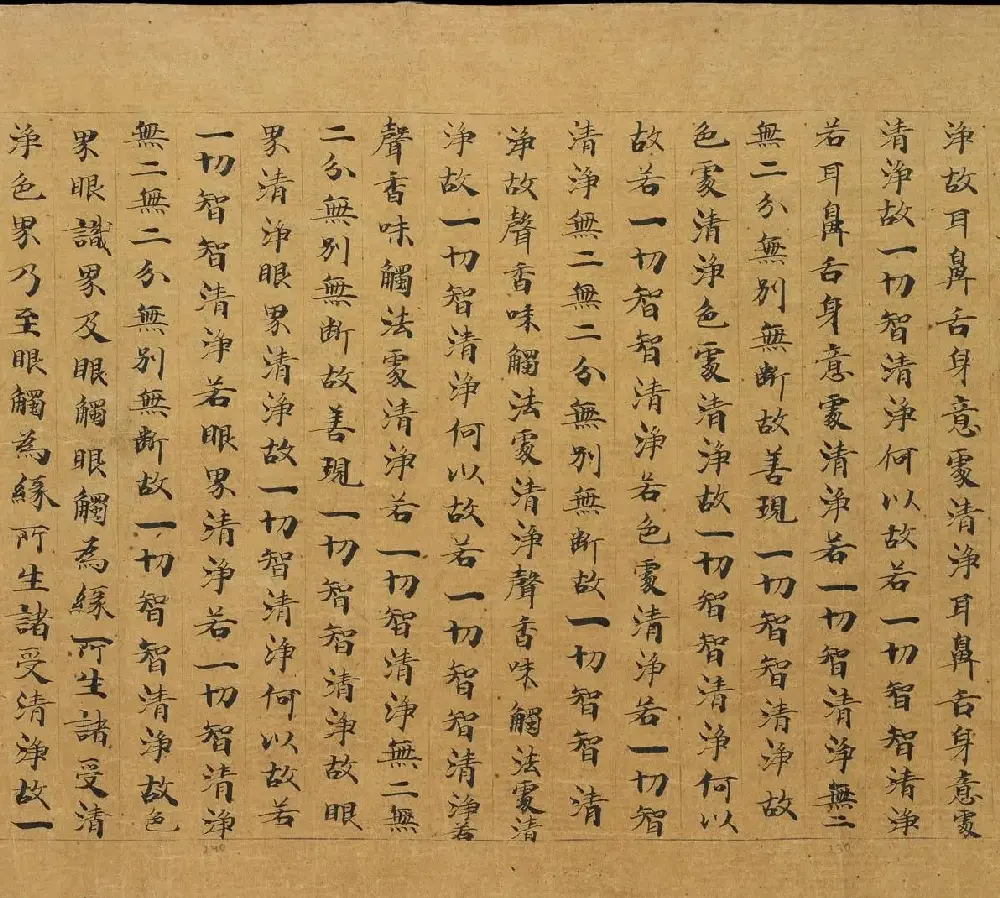 淨故耳鼻舌身意處清淨耳鼻舌身意處
清淨故一切智清淨何以故若一切智智清淨
若耳鼻舌身意處清淨若一切智智清淨無二
無二分無別無斷故善現一切智智清淨故
色處清淨色處清淨故一切智智清淨何以
故若一切智智清淨若色處清淨若一切智
清淨無二無二分無別無斷故一切智智清
淨故聲香味觸法處清淨聲香味觸法處清
淨故一切智清淨何以故若一切智智清淨若
聲香味觸法處清淨若一切智清淨無二無
二分無別無斷故善現一切智智清淨故眼
界清淨眼界清淨故一切智清淨何以故若
一切智智清淨若眼界清淨若一切智清淨
無二無二分無別無斷故一切智智清淨故色
界眼識界及眼觸眼觸為緣所生諸受清
淨色界乃至眼觸為緣所生諸受清淨故一
230
240